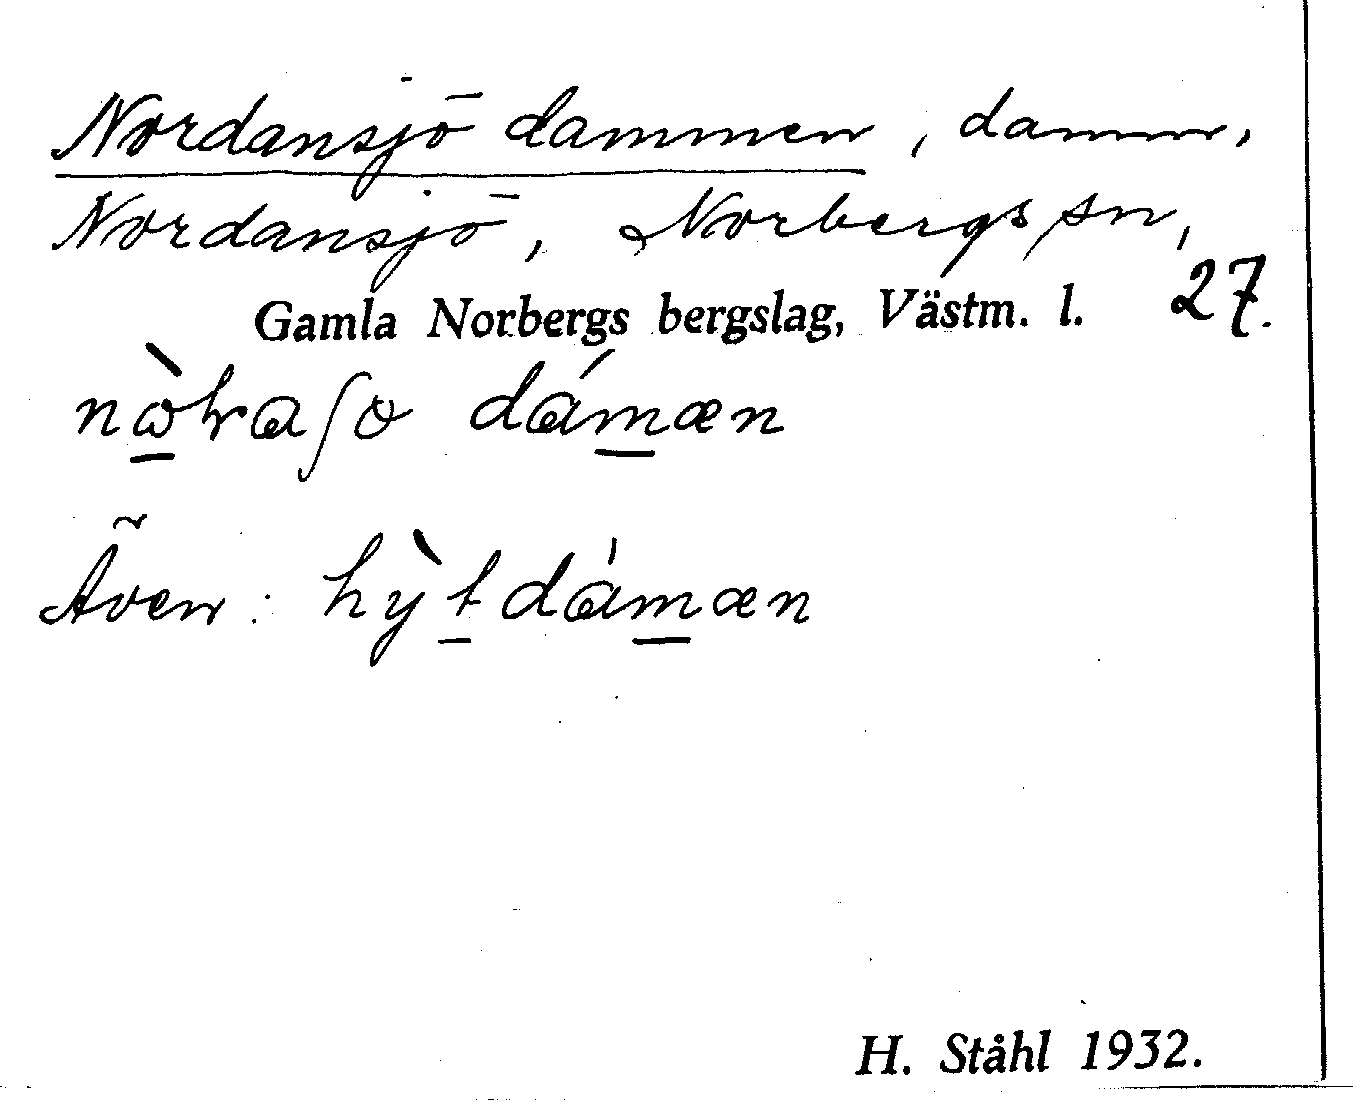 Nordansjödammen, damm,
Nordansjö, Norbergs sn,
Gamla Norbergs bergslag, Västm. l. 27.
dámæn
Även: hỳtdámæn
H. Ståhl 1932.